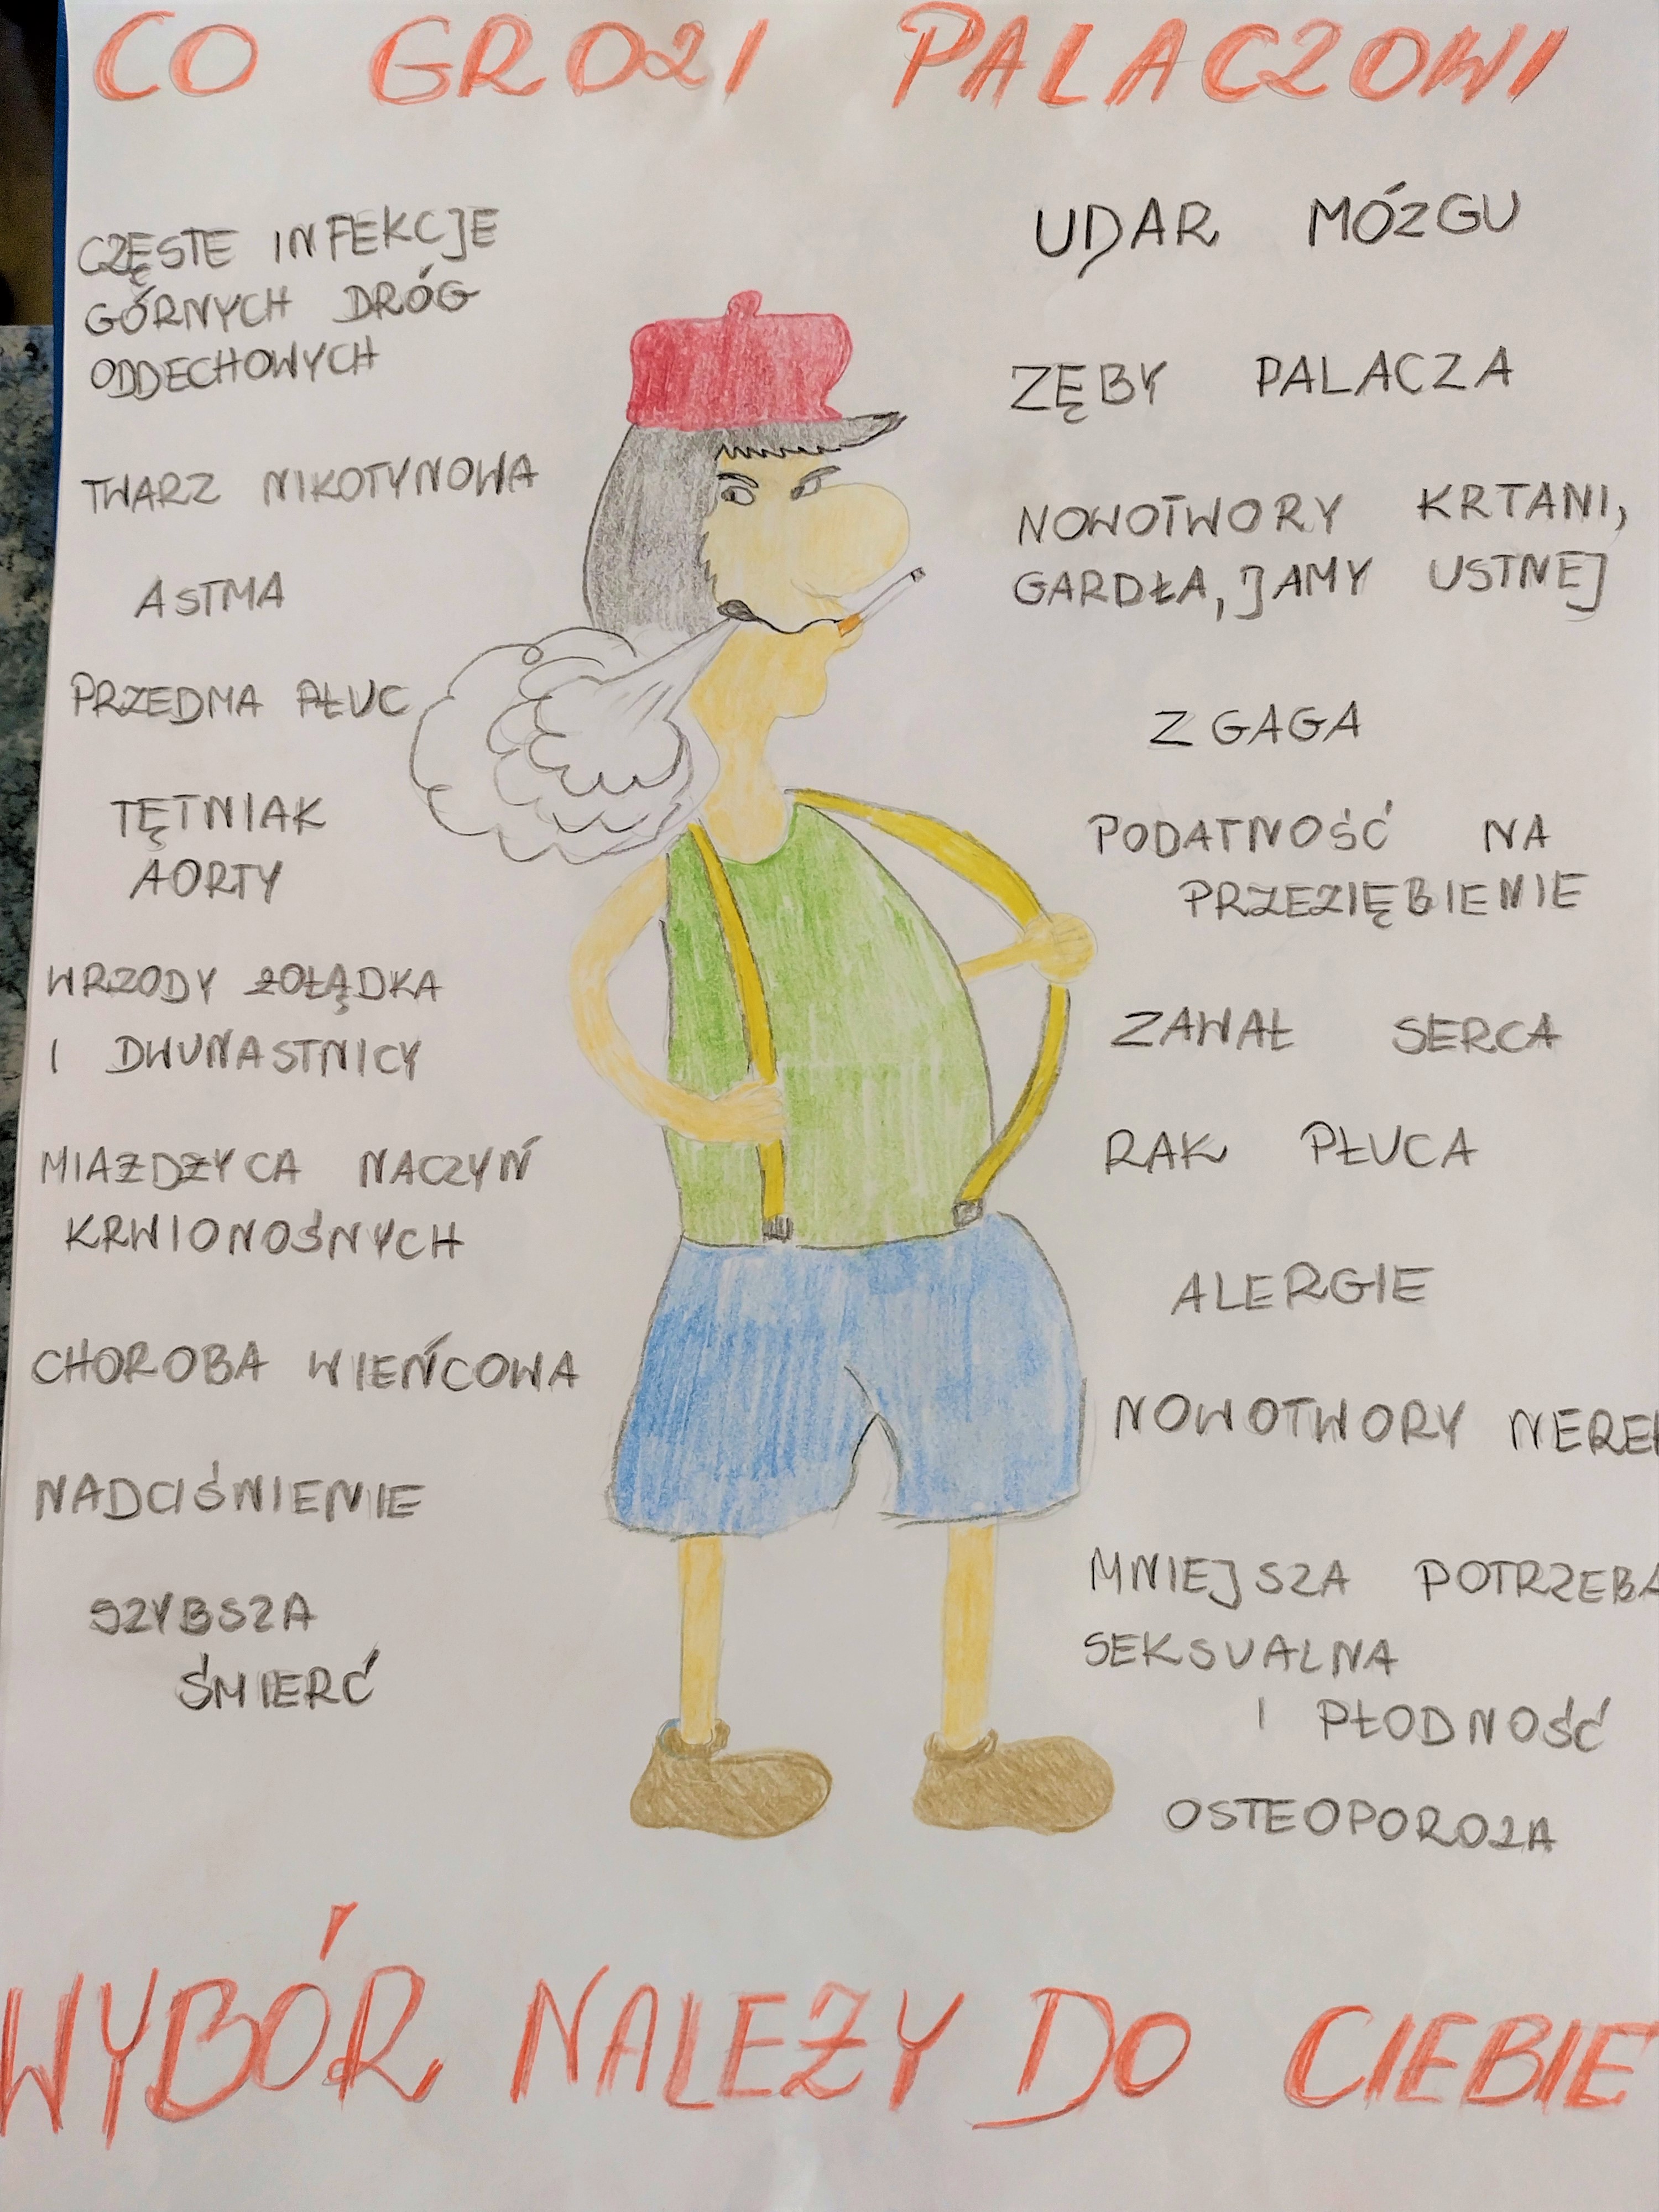 CO GROZI PALACZOWI
CZĘSTE INFEKCJE
GÓRNYCH DRÓG
ODDECHOWYCH
TWARZ NIKOTYNOWA
ASTMA
PRZEDMA PŁUC
TĘTNIAK
AORTY
WRZODY ŻOŁĄDKA
I DWUNASTNICY
MIAŻDŻYCA NACZYŃ
KRWIONOŚNYCH
CHOROBA WIEŃCOWA
NADCIŚNIENIE
SZYBSZA
ŚMIERĆ
UDAR MÓZGU
ZĘBY PALACZA
NOWOTWORY KRTANI,
GARDŁA, JAMY USTNEJ
ZGAGA
PODATNOŚĆ NA
PRZEZIĘBIENIE
ZAWAŁ SERCA
RAK PŁUCA
ALERGIE
NOWOTWORY NEREK
MNIEJSZA POTRZEBA
SEKSUALNA
I PŁODNOŚĆ
OSTEOPOROZA
WYBÓR NALEŻY DO CIEBIE